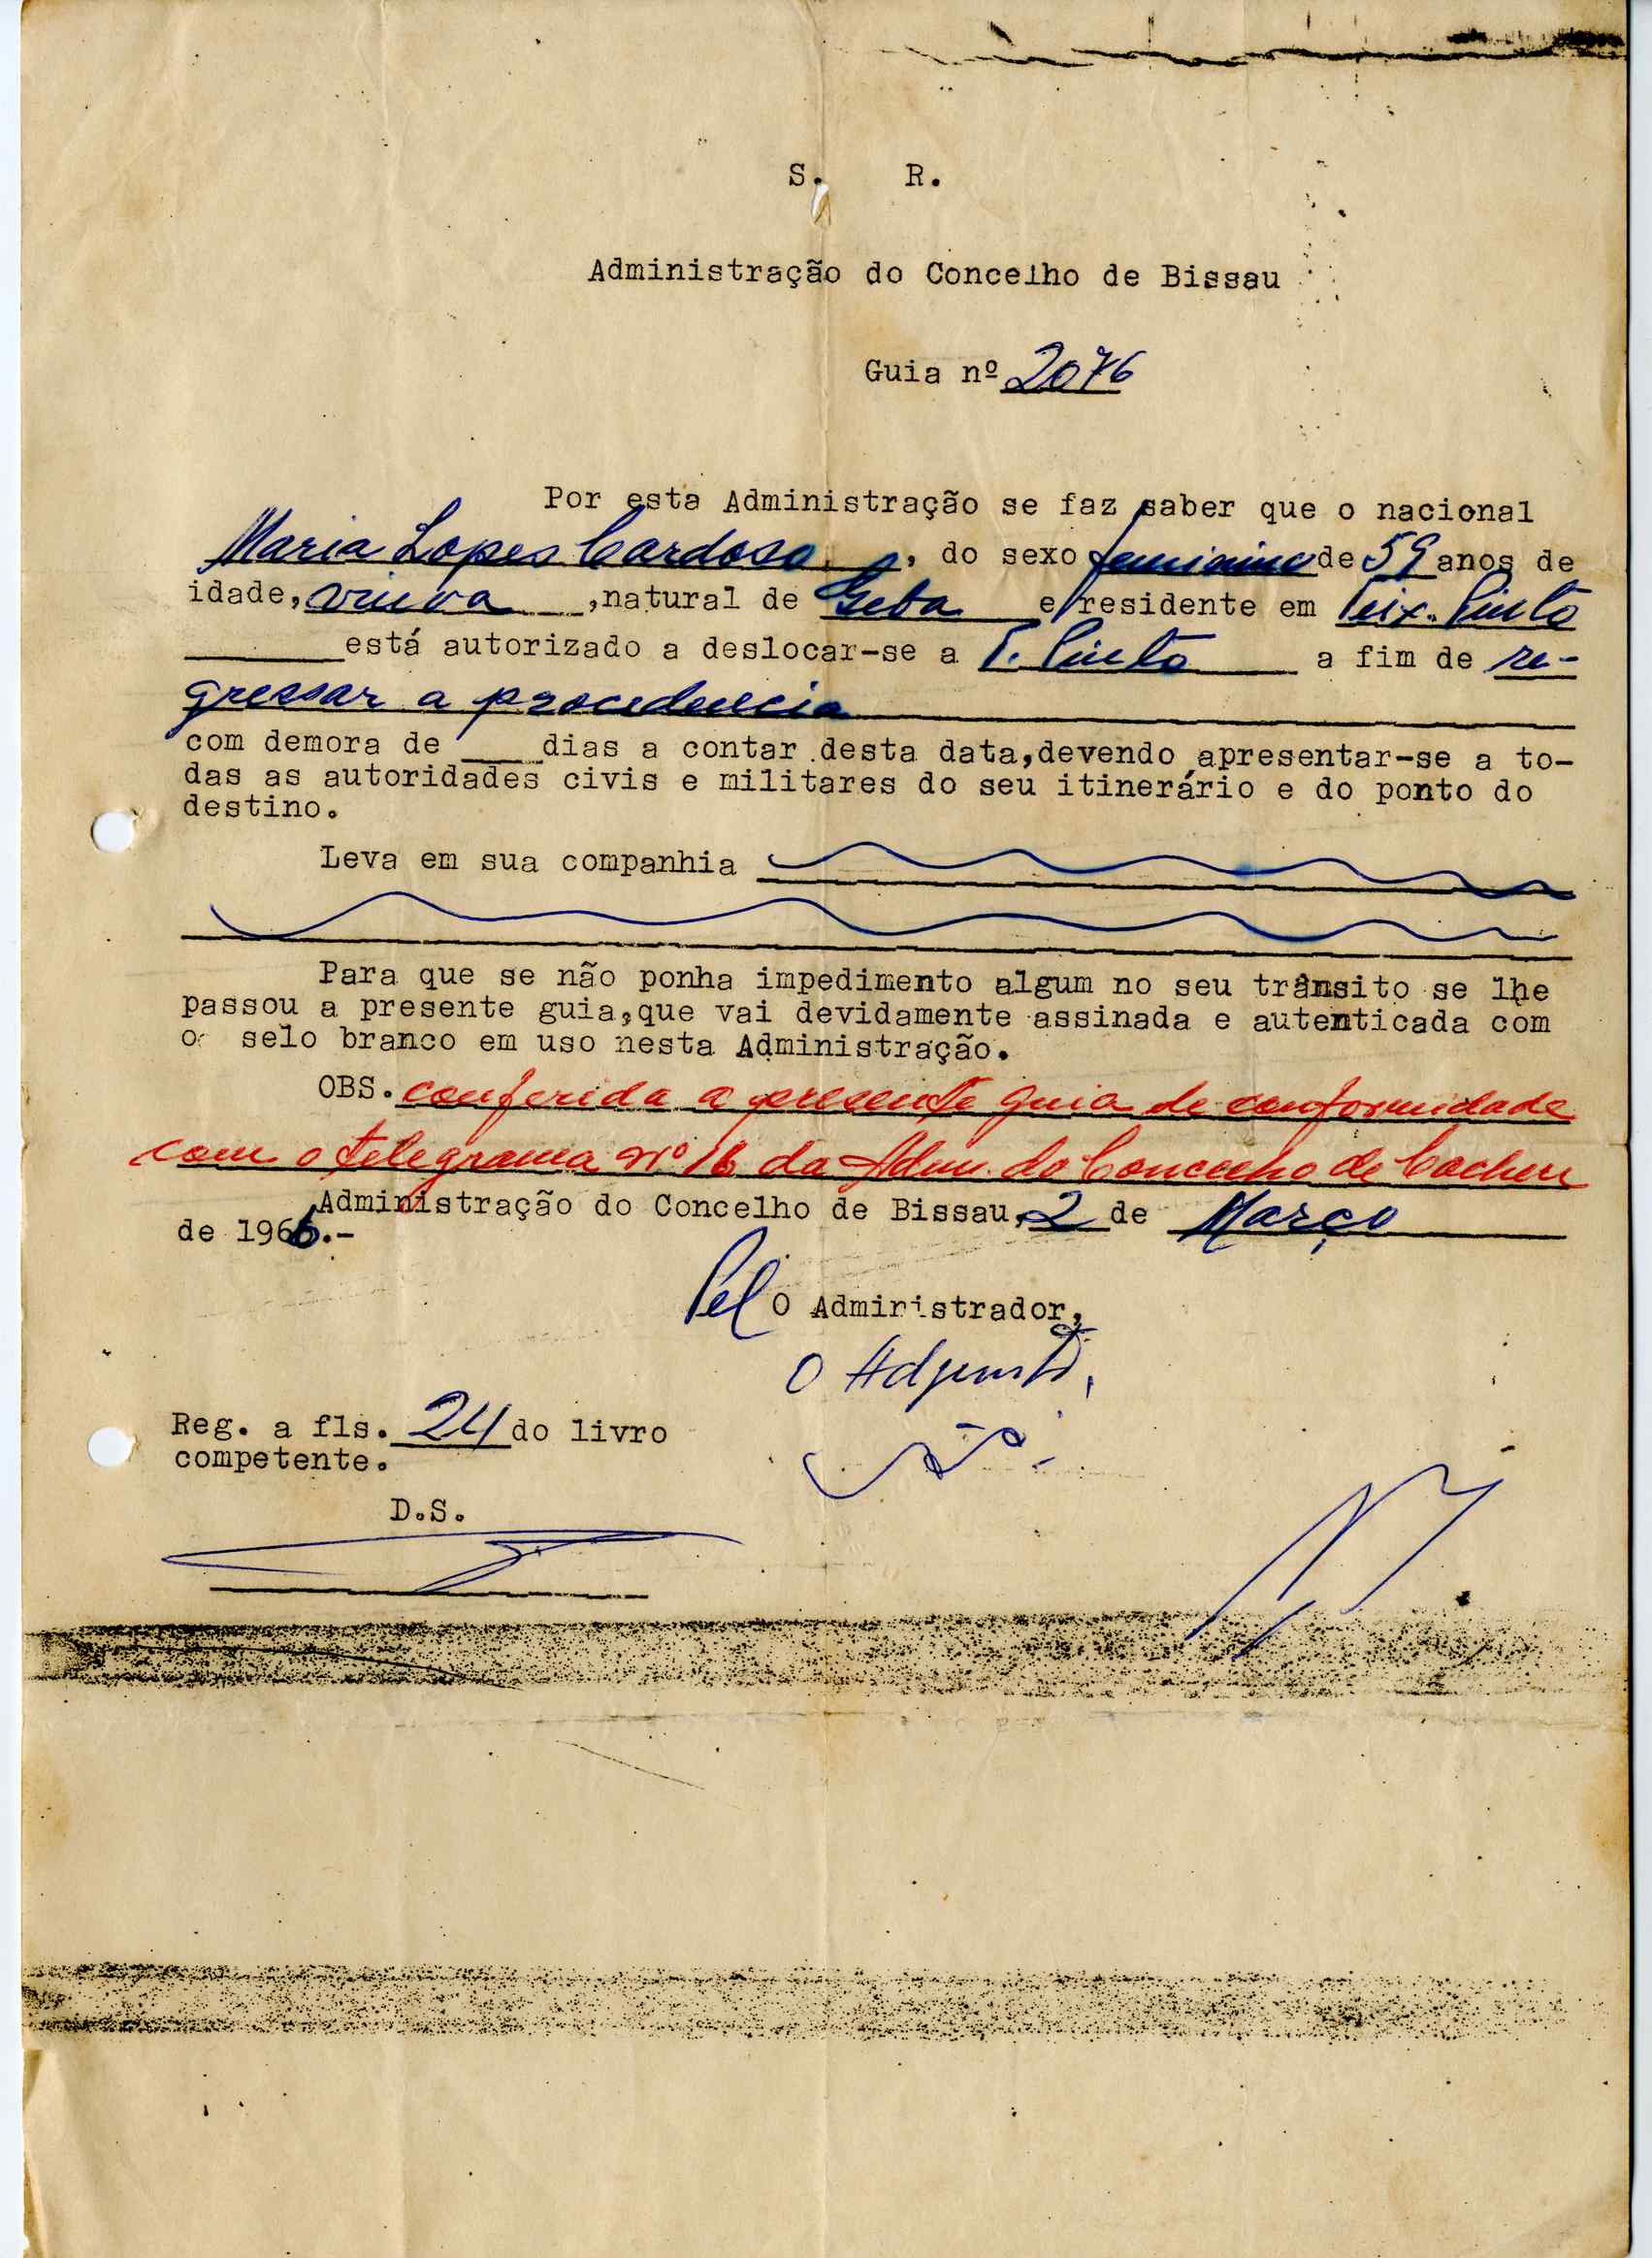 S. R.
Administração do Concelho de Bissau
Guia nº 2076
Por esta Administração se faz saber que o nacional
Maria Lopes Cardoso, do sexo feminino de 59 anos de
idade, viuva, natural de Geba e residente em Teix. Pinto
está autorizado a deslocar-se a T. Pinto a fim de re-
gressar a procedencia
com demora de ____ dias a contar desta data, devendo apresentar-se a to-
das as autoridades civis e militares do seu itinerário e do ponto do
destino.
Leva em sua companhia
Para que se não ponha impedimento algum no seu trânsito se lhe
passou a presente guia, que vai devidamente assinada e autenticada com
o selo branco em uso nesta Administração.
OBS. conferida a presente guia de conformidade
com o telegrama nº 16 da Adm. do Concelho de Cacheu
Administração do Concelho de Bissau, 2 de Março
de 1966.-
Pel O Administrador,
O Adjunto,
Reg. a fls. 24 do livro
competente.
D.S.